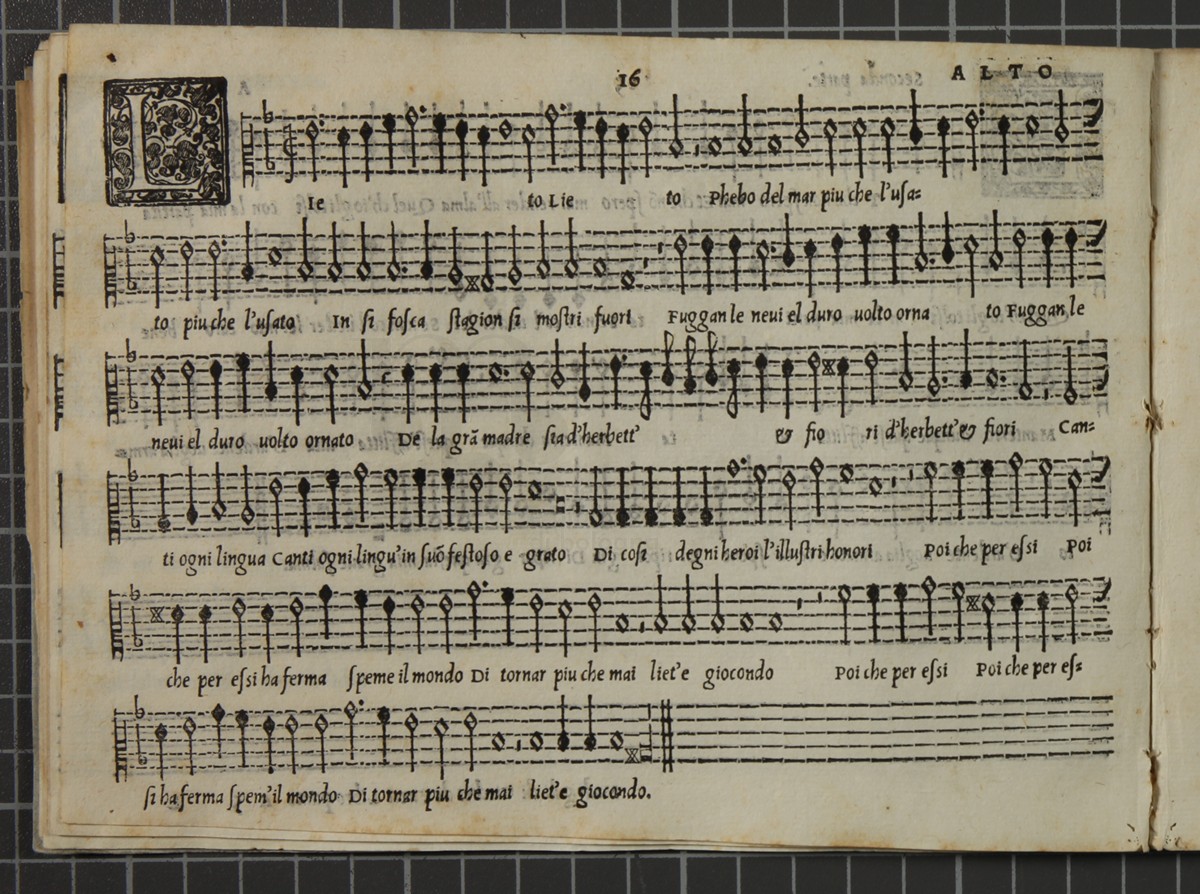 16 ALTO
LIe to Lie to Phebo del mar piu che l'usa=
to piu che l'usato In si fosca stagion si mostri fuori Fuggan le neui el duro uolto orna to Fuggan le
neui el duro uolto ornato De la grã madre sia d'herbett' & fio ri d'herbett'& fiori Can=
ti ogni lingua Canti ogni lingu'in suõ festoso e grato Di cosi degni heroi l'illustri honori Poi che per essi Poi
che per essi ha ferma speme il mondo Di tornar piu che mai liet'e giocondo Poi che per essi Poi che per es=
si ha ferma spem'il mondo Di tornar piu che mai liet'e giocondo.